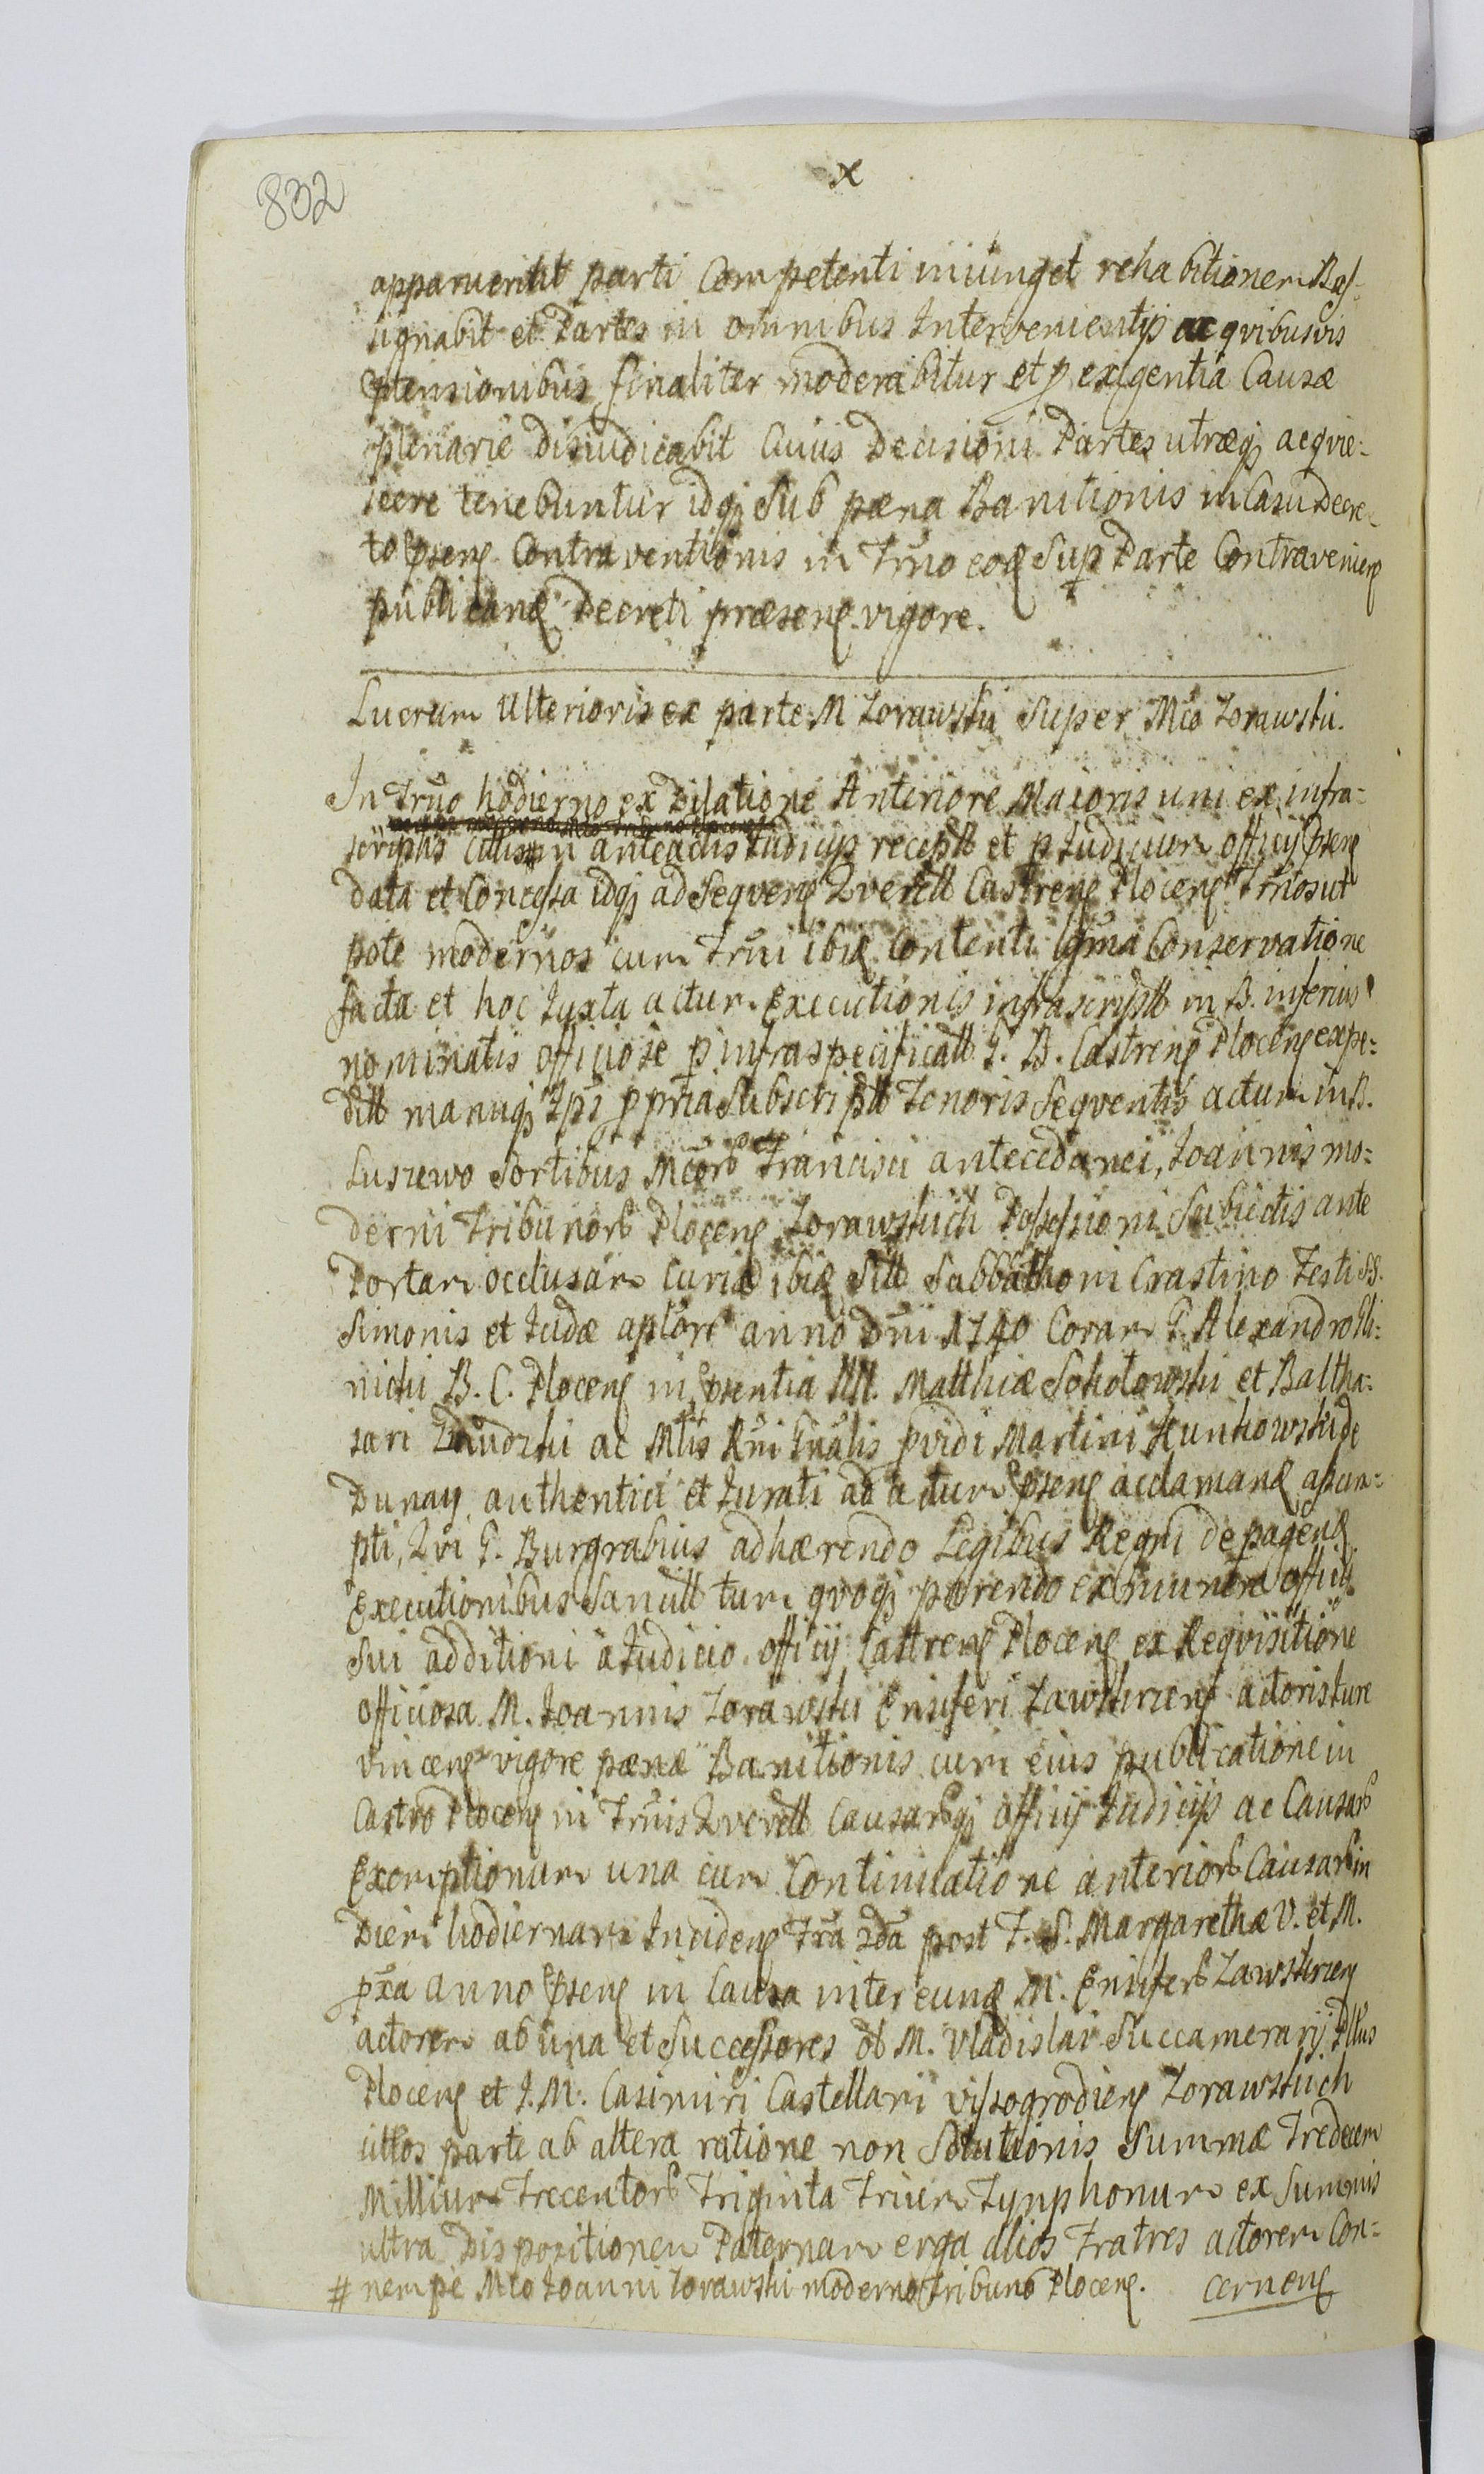 832
x
apparuerint parti Competenti iniunget rehabitionem Bas-
signabit et Partes in omnibus Intervenientijs ac qvibusvis
ptensionibus finaliter moderabitur et p exigentia Causæ
plenarie disiudicabit Cuius Decisioni Partes utræq acqvie-
scere tenebuntur idq Sub pæna Banitionis in Casu Decre-
to psens Contraventionis in Trno eod Sup Parte Contraveniens
publicand Decreti præsens vigore.
Lucrum Ulterioris ex parte M Zorawski Super Mco Zorawski.
In Trno hodierno ex Dilatione Anteriore Maioris uni ex infra-
scriptis Citatis # in anteactis Iudicijs recept et p Iudicium officij psens
data et Concessa idq ad Seqvens Qverell Castrens Plocens Trnos ut
pote modernos cum Trni ibid Contenti gma Conservatione
facta et hoc Iuxta actum Executionis infrascript in B. inferius
nominatis officiose p infraspecificatt G. B. Castrens Plocens expe-
ditt manuq Ips ppria Subscriptt Tenoris Seqventis actum in B.
Luszewo Sortibus Mcorb Francisci antecedanei, Joannis mo-
derni Tribunorb Plocens Zorawskich Possessioni Subiectis ante
Portam occlusam Curiæ ibid Sitt Sabbatho in Crastino Festi SS.
Simonis et Iudæ aplorb anno Dni 1740 Coram G. Alexandro Ili-
nicki B. C. Plocens in psentia NN. Matthiæ Sokolowski et Baltha-
sari ac Mtis Rni Gnalis pvidi Martini Kunkowski de
Dunay, authentici et Iurati ad actum psens acclamand assum-
pti, Qvi G. Burgrabius adhærendo Legibus Regni de pagend
Executionibus Sancitt tum qvoq parendo ex munere officij
Sui additioni a Iudicio officij Castrens Plocens ex Reqvisitione
officiosa M. Joannis Zorawski Ensiferi Zawskrzens actoris Iure
vincens vigore pænæ Banitionis cum eius publicatione in
Castro Plocens in Trnis Qverell Causarq officij Iudicijs ac Causarb
Exemptionum una cum Continuatione anteriorb Causarb in
Diem hodiernam Incidens fra 2da post F. S. Margarethæ V. et M.
pxa anno psens in Causa inter eund M. Ensiferb Zawskrzens
actorem ab una et Successores ol M. Vladislai Succamerarij Pttus
Plocens et I. M. Casimiri Castellani Vissogrodiens Zorawskich
cittos parte ab altera ratione non Solutionis Summæ Tredecem
Millium Trecentorb Triginta Trium Tynphonum ex Summis
ultra Dispositionem Paternam erga alios Fratres actorem Con-
# nempe Mco Joanni Zorawski moderno Tribuno Plocens. cernens